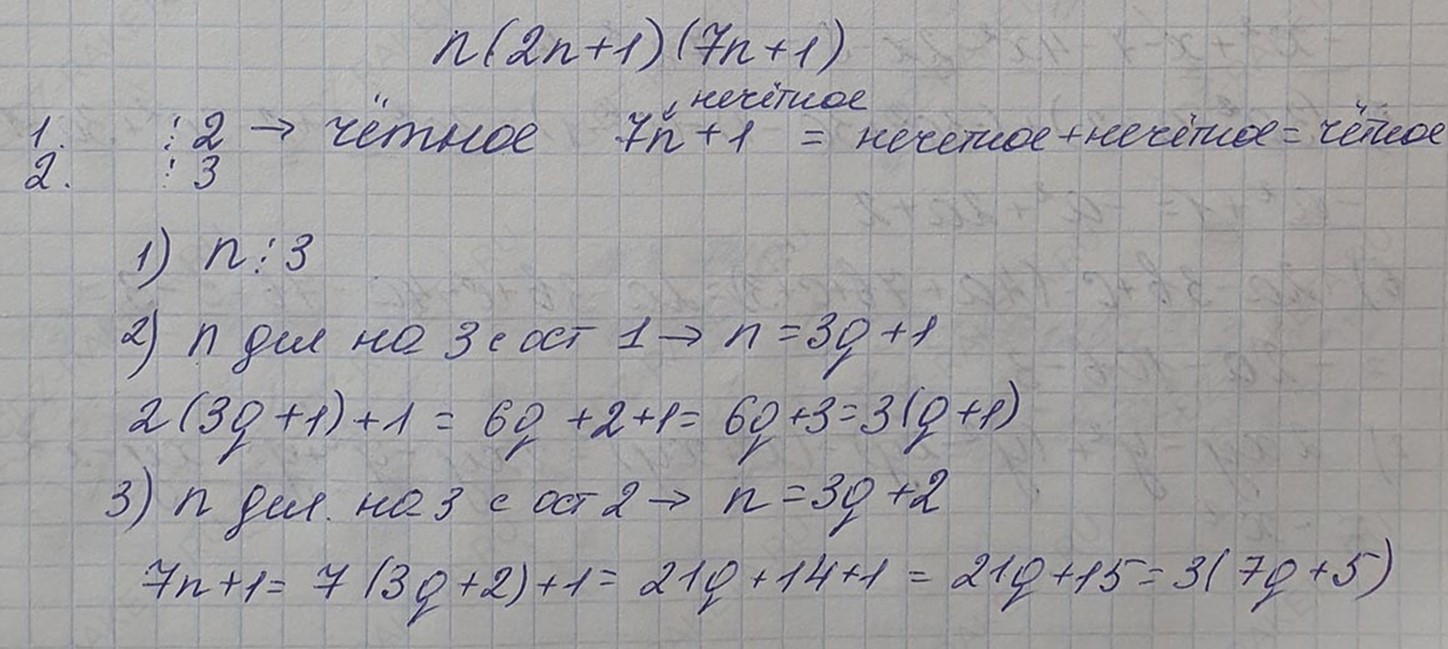 n(2n+1)(7n+1)
нечётное
1. ⋮2 → чётное 7n+1 = нечетное+нечётное=чётное
2. ⋮3
1) n⋮3
2) n дел на 3 с ост 1 → n=3q+1
2(3q+1)+1= 6q+2+1= 6q+3=3(q+1)
3) n дел. на 3 с ост 2 → n=3q+2
7n+1= 7(3q+2)+1= 21q+14+1 = 21q+15=3(7q+5)